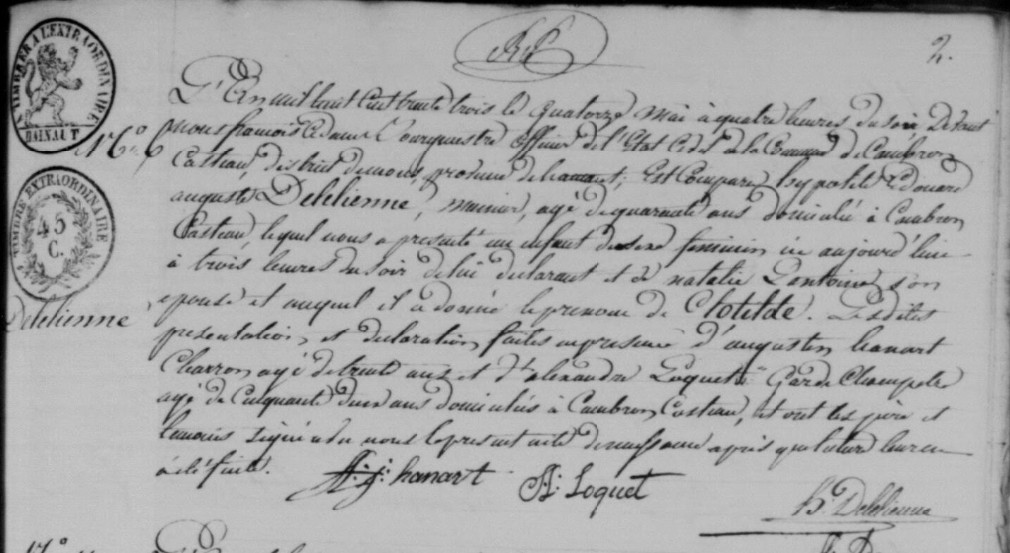 2.
TIMBRE A L'EXTRAORDINAIRE
HAINAUT
N° 6
TIMBRE EXTRAORDINAIRE
45
C.
Delelienne
L'an mil huit cent trente trois le quatorze mai à quatre heures du soir Devant
nous francois officier de l'état Civil de la Commune de Cambron
Casteau, district de mons, province de hainaut, Est Comparu hypolite Edouard
auguste Delelienne, meunier, agé de quarante ans domicilié à Cambron
Casteau, lequel nous a presenté un enfant du sexe feminin né aujourd'hui
à trois heures du soir de lui declarant et de natalie Lantoine, son
epouse et auquel il a donné le prenom de Clotilde. Lesdites
presentation, et declaration faites en presence d'augustin hanart
Charron agé de trente ans et d'alexandre Loquet Garde Champetre
agé de Cinquante deux ans domiciliés à Cambron Casteau, et ont les père et
temoins signé avec nous le present acte de naissance après que lecture leur en
a été faite.
A: j: hanart
A: Loquet
h: Delelienne
17°